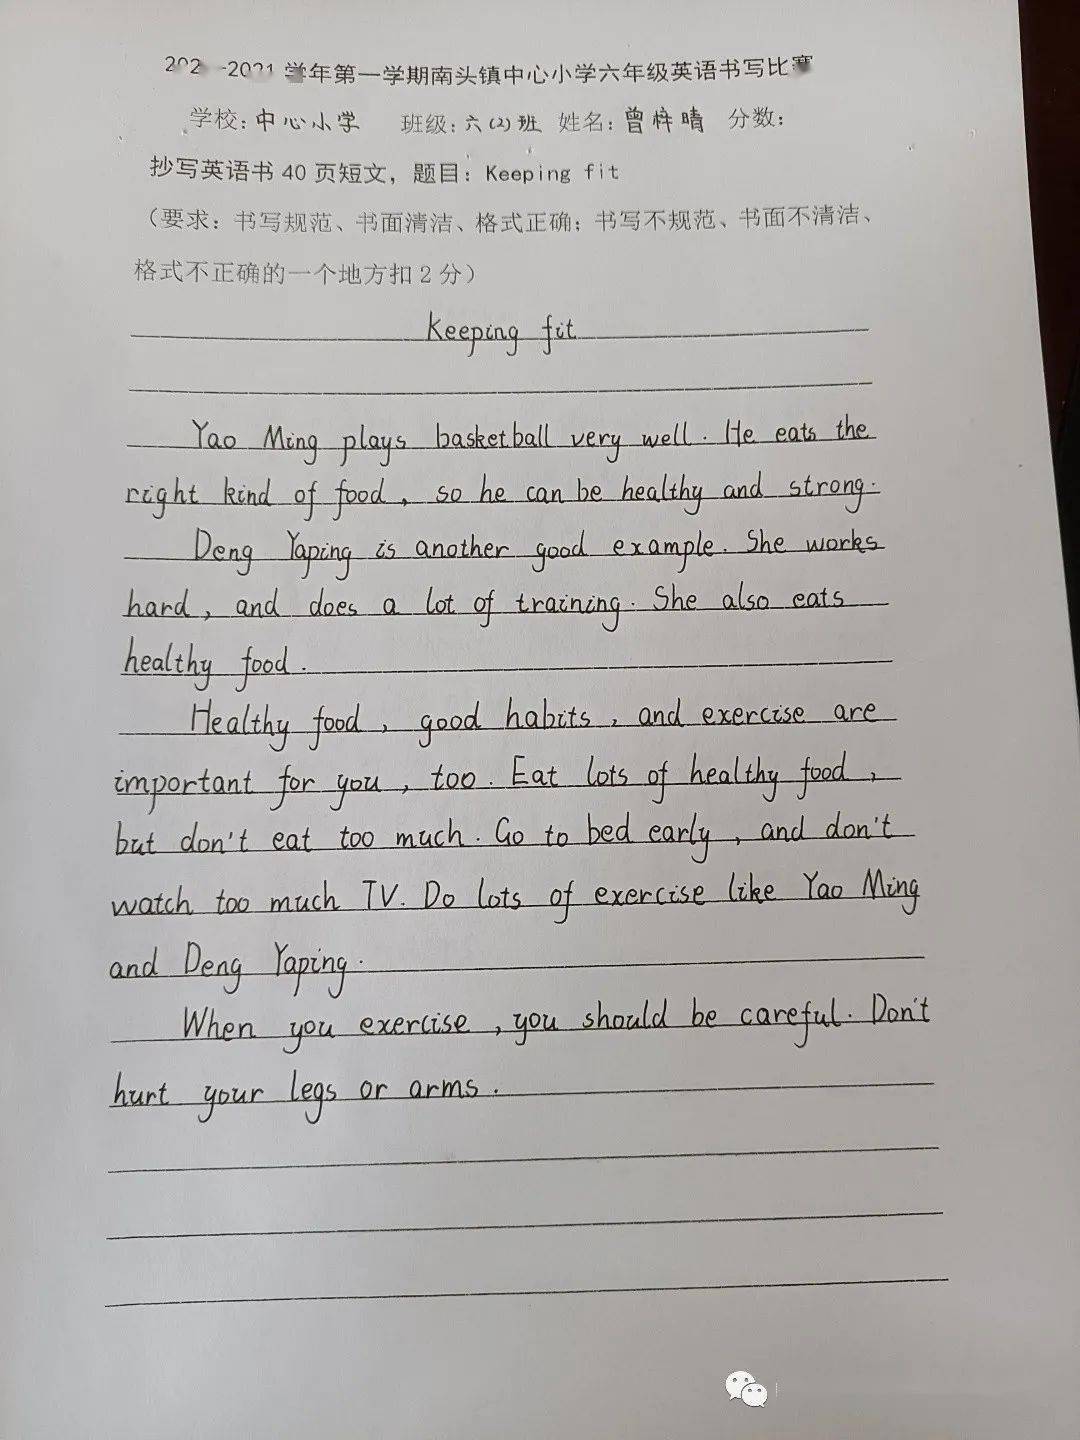 2020-2021学年第一学期南头镇中心小学六年级英语书写比赛
学校:中心小学 班级:六(2)班 姓名:曾梓晴 分数:
抄写英语书40页短文，题目：Keeping fit
（要求：书写规范、书面清洁、格式正确；书写不规范、书面不清洁、
格式不正确的一个地方扣2分）
Keeping fit
Yao Ming plays basketball very well. He eats the
right kind of food, so he can be healthy and strong.
Deng Yaping is another good example. She works
hard, and does a lot of training. She also eats
healthy food.
Healthy food, good habits, and exercise are
important for you, too. Eat lots of healthy food,
but don't eat too much. Go to bed early, and don't
watch too much TV. Do lots of exercise like Yao Ming
and Deng Yaping.
When you exercise, you should be careful. Don't
hurt your legs or arms.